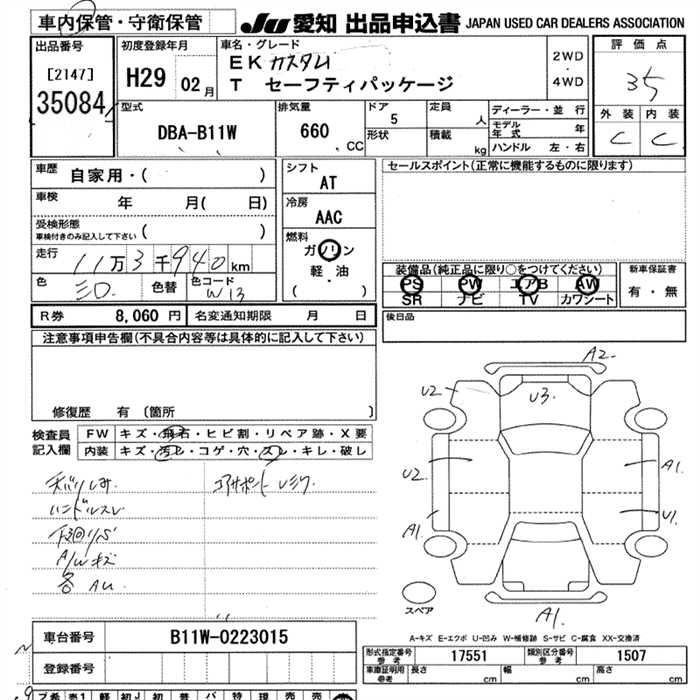 車内保管・守衛保管
JU 愛知 出品申込書 JAPAN USED CAR DEALERS ASSOCIATION
出品番号
[2147]
35084
初度登録年月
H29 02月
車名・グレード
EK カスタム
T セーフティパッケージ
2WD
・
4WD
評価点
35
外装 内装
C C
型式
DBA-B11W
排気量
660 CC
ドア
5
形状
定員
人
積載
kg
ディーラー・並行
モデル年式 年
ハンドル 左・右
車歴
自家用・( )
車検
年 月( 日)
受検形態
車検付きのみ記入して下さい ( )
走行
11万3千940km
色
シロ
色替
色コード
W13
シフト
AT
冷房
AAC
燃料
ガソリン
軽・油
( ・ )
セールスポイント(正常に機能するものに限ります)
装備品(純正品に限り○をつけてください)
PS PW エアB AW
SR ナビ TV カワシート
新車保証書
有・無
後日品
R券 8,060円 名変通知期限 月 日
注意事項申告欄(不具合内容等は具体的に記入して下さい)
修復歴 有 〔箇所 〕
検査員記入欄
FW キズ・飛石・ヒビ割・リペア跡・X要
内装 キズ・汚レ・コゲ・穴・スレ・キレ・破レ
天バリシミ
ハンドルスレ
下回リサビ
A/Wキズ
各AU
A2
U2
U3
U2
A1
A1
U1
A1
スペア
A-キズ E-エクボ U-凹み W-補修跡 S-サビ C-腐食 XX-交換済
車台番号 B11W-0223015
登録番号
形式指定番号 参考 17551
類別区分番号 参考 1507
車庫証明用 参考 長さ cm 幅 cm 高さ cm